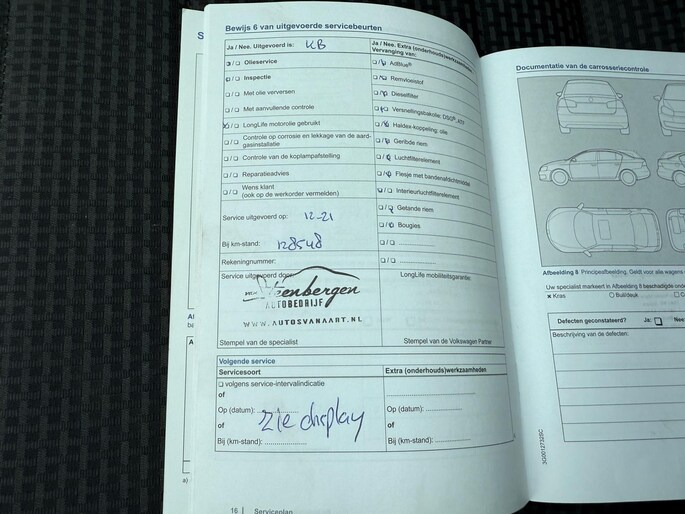 Bewijs 6 van uitgevoerde servicebeurten
Ja / Nee. Uitgevoerd is: KB
☐/☐ Olieservice
☐/☐ Inspectie
☐/☐ Met olie verversen
☐/☐ Met aanvullende controle
☐/☐ LongLife motorolie gebruikt
☐/☐ Controle op corrosie en lekkage van de aard-
gasinstallatie
☐/☐ Controle van de koplampafstelling
☐/☐ Reparatieadvies
☐/☐ Wens klant
(ook op de werkorder vermelden)
Service uitgevoerd op: 12-21
Bij km-stand: 128548
Rekeningnummer:
Service uitgevoerd door:
Steenbergen
AUTOBEDRIJF
WWW.AUTOSVANAART.NL
Stempel van de specialist
Ja / Nee. Extra (onderhouds)werkzaamheden
Vervanging van:
☐/☐ AdBlue®
☐/☐ Remvloeistof
☐/☐ Dieselfilter
☐/☐ Versnellingsbakolie; DSG®,
☐/☐ Haldex-koppeling: olie
☐/☐ Geribde riem
☐/☐ Luchtfilterelement
☐/☐ Flesje met bandenafdichtmiddel
☐/☐ Interieurluchtfilterelement
☐/☐ Getande riem
☐/☐ Bougies
☐/☐
☐/☐ ....................
LongLife mobiliteitsgarantie:
Stempel van de Volkswagen Partner
Volgende service
Servicesoort
☐ volgens service-intervalindicatie
of
Op (datum): ....................
zie display
of
Bij (km-stand): ....................
Extra (onderhouds)werkzaamheden
....................
Op (datum): ....................
of
Bij (km-stand): ....................
16 | Serviceplan
Documentatie van de carrosseriecontrole
Afbeelding 8 Principeafbeelding. Geldt voor alle wagens
Uw specialist markeert in Afbeelding 8 beschadigde
x Kras ○ Buil/deuk
Defecten geconstateerd? Ja: ☐ Nee
Beschrijving van de defecten:
3G0012732SC
a)